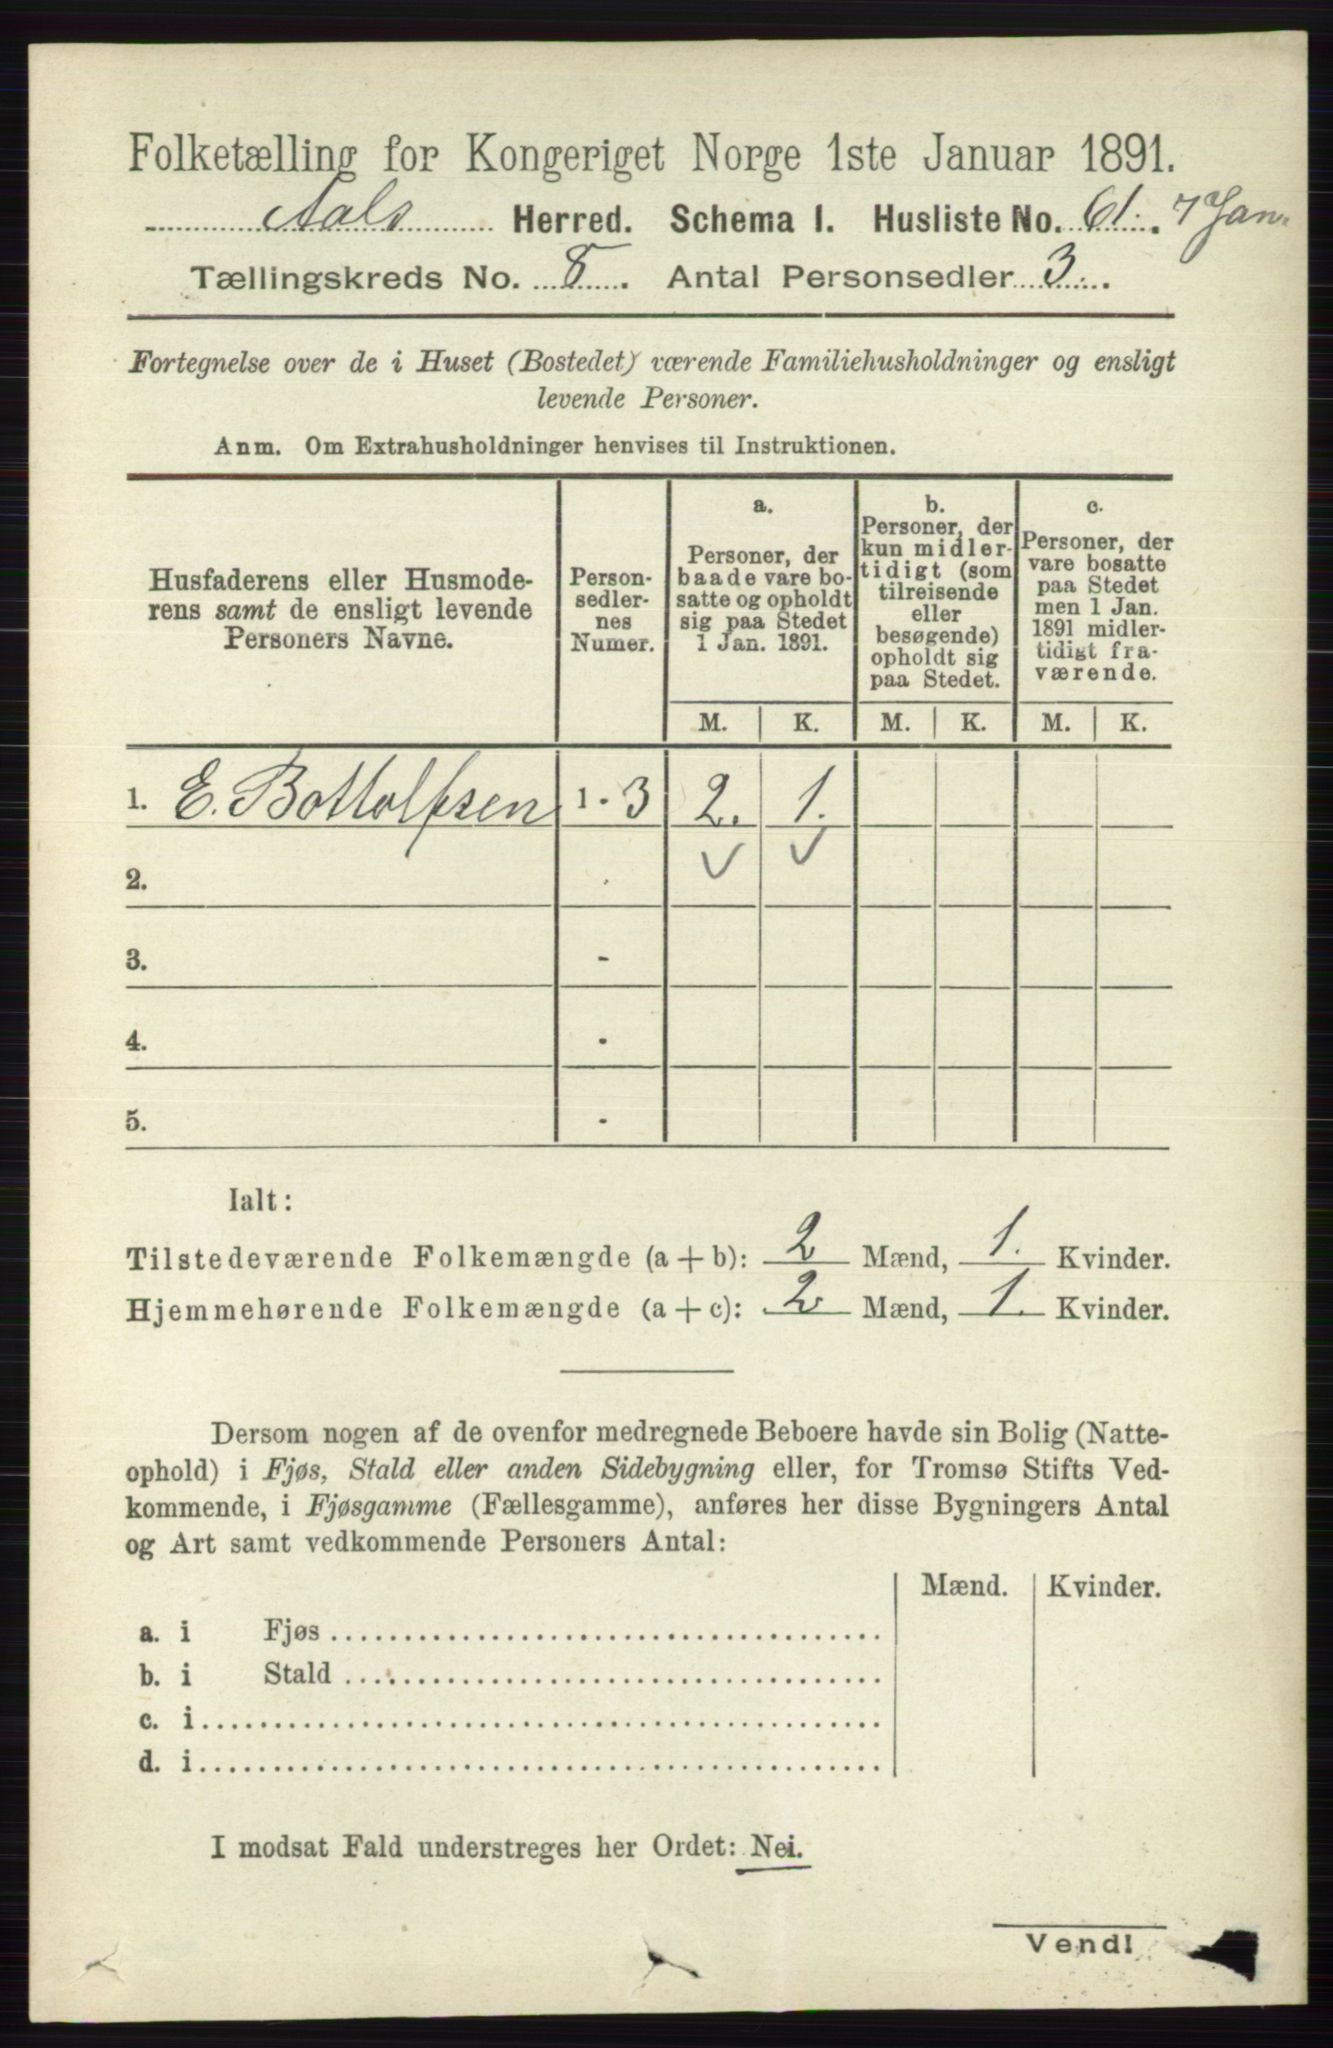 Folketælling for Kongeriget Norge 1ste Januar 1891.
Aals Herred. Schema 1. Husliste No. 61. 7 Jan.
Tællingskreds No. 8. Antal Personsedler 3.
Fortegnelse over de i Huset (Bostedet) værende Familiehusholdninger og ensligt
levende Personer.
Anm. Om Extrahusholdninger henvises til Instruktionen.
Husfaderens eller Husmode-
rens samt de ensligt levende
Personers Navne.
Person-
sedler-
nes
Numer.
a.
Personer, der
baade vare bo-
satte og opholdt
sig paa Stedet
1 Jan. 1891.
b.
Personer, der
kun midler-
tidigt (som
tilreisende
eller
besøgende)
opholdt sig
paa Stedet.
c.
Personer, der
vare bosatte
paa Stedet
men 1 Jan.
1891 midler-
tidigt fra-
værende.
M. K. M. K. M. K.
1. E. Bottolfsen 1 - 3 2. 1.
2.
3. -
4. -
5. -
Ialt:
Tilstedeværende Folkemængde (a + b): 2 Mænd, 1. Kvinder.
Hjemmehørende Folkemængde (a + c): 2 Mænd, 1. Kvinder.
Dersom nogen af de ovenfor medregnede Beboere havde sin Bolig (Natte-
ophold) i Fjøs, Stald eller anden Sidebygning eller, for Tromsø Stifts Ved-
kommende, i Fjøsgamme (Fællesgamme), anføres her disse Bygningers Antal
og Art samt vedkommende Personers Antal:
Mænd. Kvinder.
a. i Fjøs
b. i Stald
c. i
d. i
I modsat Fald understreges her Ordet: Nei.
Vend!